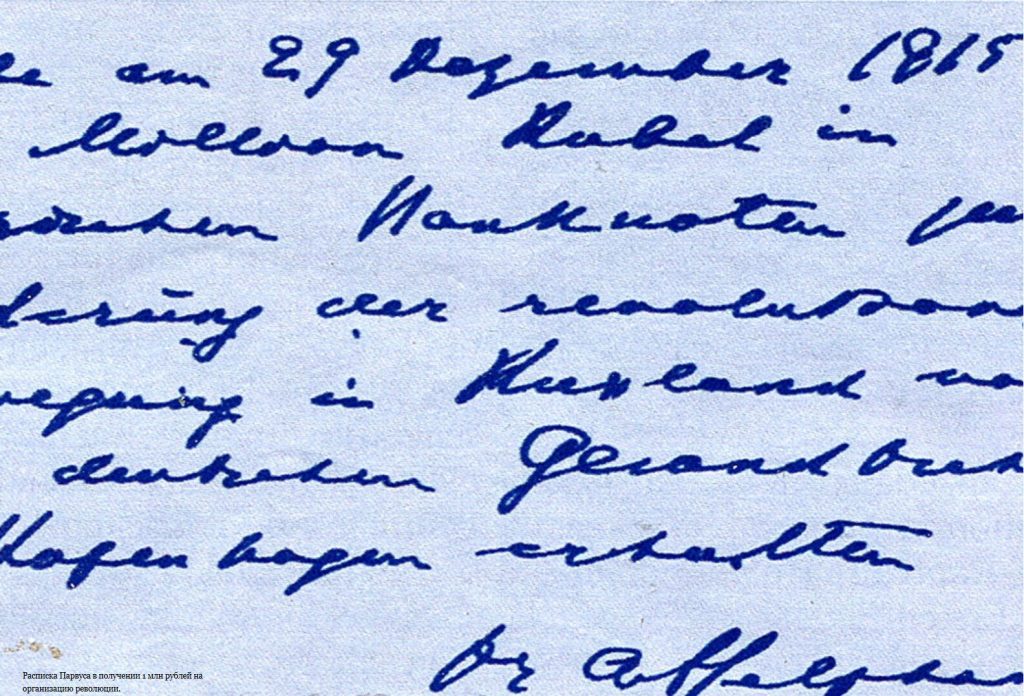 am 29 Dezember 1915
Million Rubel in
ssischen Banknoten zu
derung der revolution
wegung in Russland vo
deutschen Gesandtsch
Kopenhagen erhalten
Dr A Helphan
Расписка Парвуса в получении 1 млн рублей на
организацию революции.